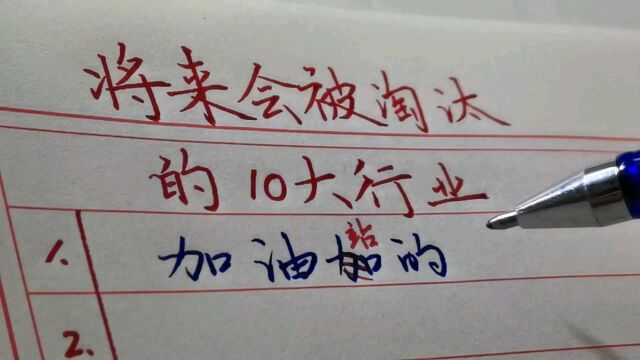 将来会被淘汰
的10大行业
1. 加油站的
2.